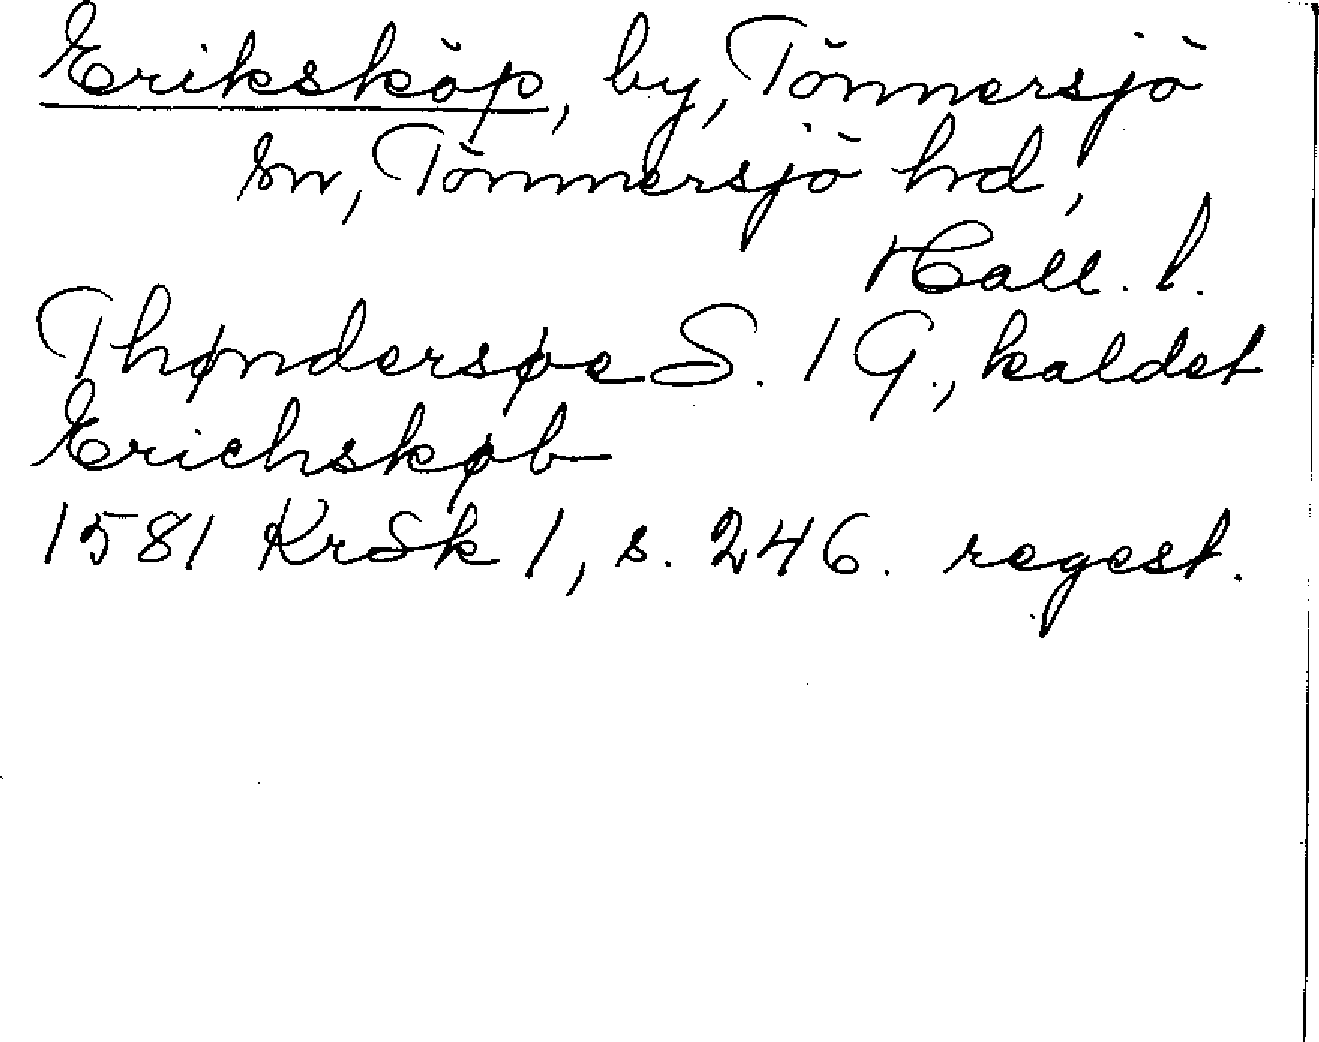 Eriksköp, by, Tönnersjö
sn, Tönnersjö hd,
Hall. l.
Thøndersøe S. 1 G., kaldet
Erichskøb
1581 KrSk 1, s. 246. regest.